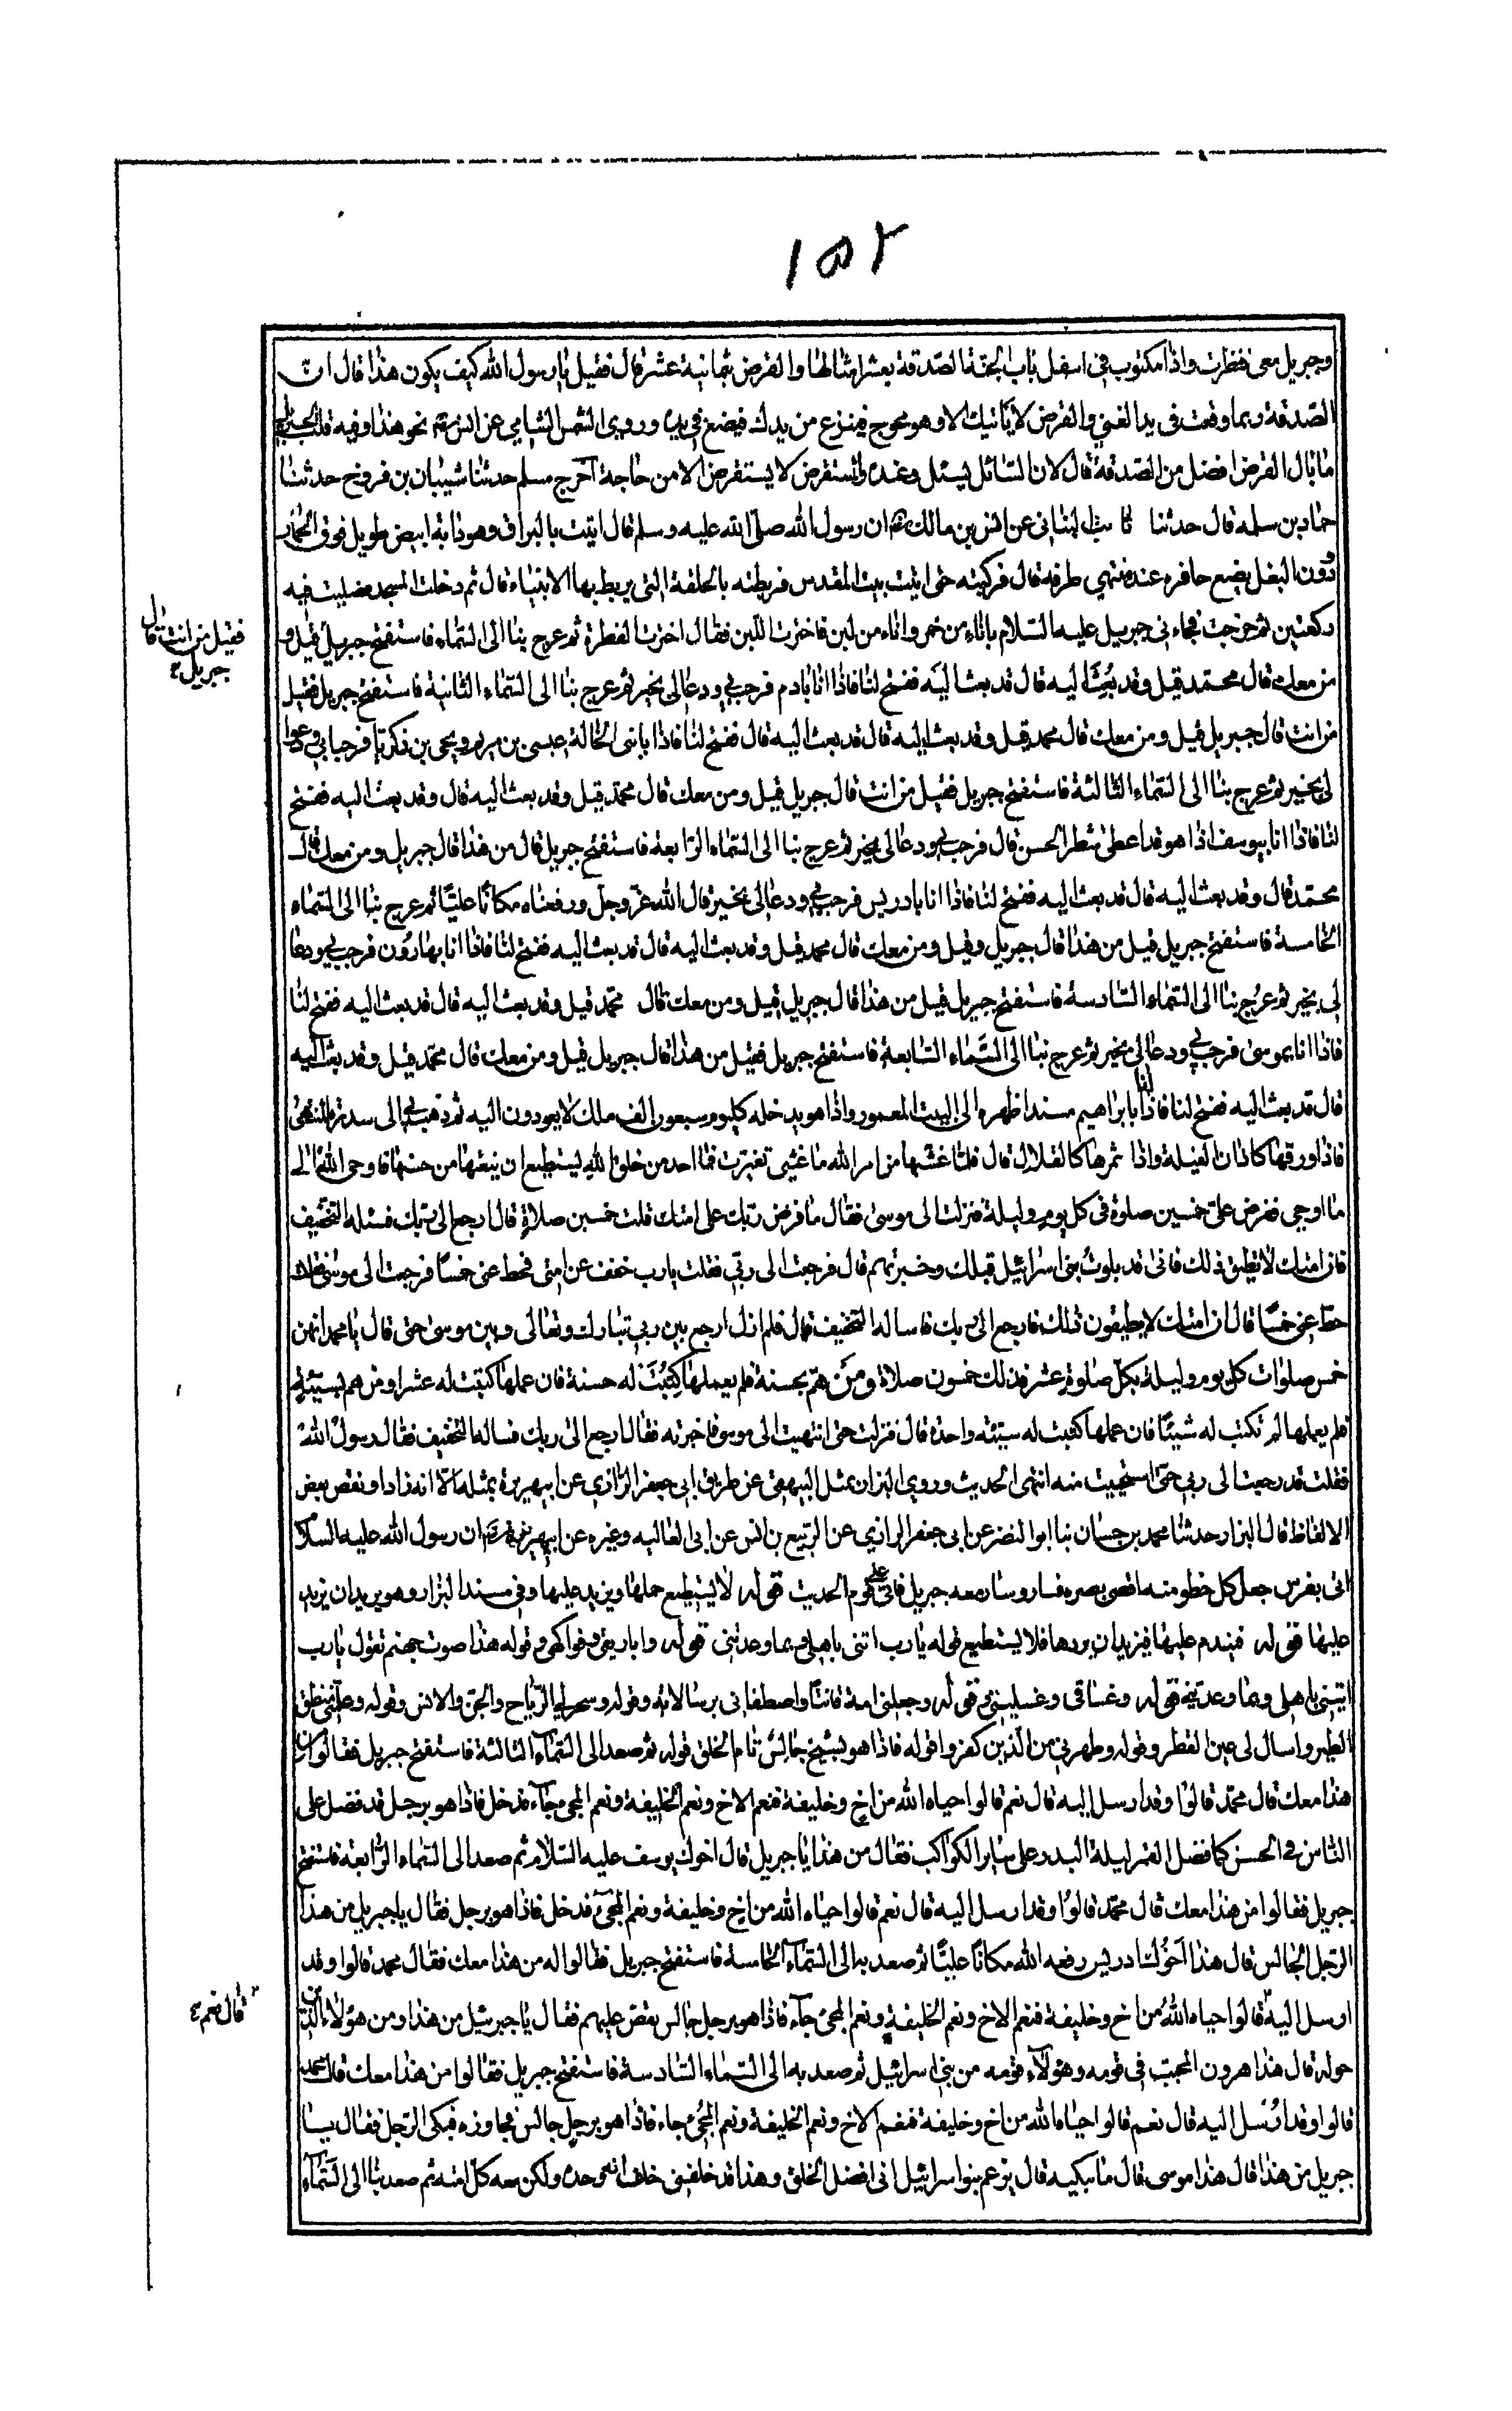 ١٥٢
وجبريل معى فنظرت واذا مكتوب فى اسفل باب الجنة الصدقة بعشر امثالها والقرض بثمانية عشر قال فقيل يا رسول الله كيف يكون هذا قال ان
الصدقة ربما وقعت فى يد الغنى والقرض لا يأتيك الا وهو محوج فينزع من يدك فيضع فى يده وروى الشمس الشامى عن انس نحو هذا وفيه قلت لجبريل
ما بال القرض افضل من الصدقة قال لان السائل يسئل وعنده والمستقرض لا يستقرض الا من حاجة اخرج مسلم حدثنا شيبان بن فروخ حدثنا
حماد بن سلمه قال حدثنا ثابت البنانى عن انس بن مالك ان رسول الله صلى الله عليه وسلم قال اتيت بالبراق وهو دابة ابيض طويل فوق الحمار
دون البغل يضع حافره عند منتهى طرفه قال فركبته حتى اتيت بيت المقدس فربطته بالحلقة التى يربط بها الانبياء قال ثم دخلت المسجد فصليت فيه
ركعتين ثم خرجت فجاءنى جبريل عليه السلام باناء من خمر واناء من لبن فاخترت اللبن فقال اخترت الفطرة ثم عرج بنا الى السماء فاستفتح جبريل قيل و
فقيل من انت قال
جبريل
من معك قال محمد قيل وقد بُعِثَ اليه قال قد بعث اليه ففتح لنا فاذا انا بادم فرحب بى ودعا لى بخير ثم عرج بنا الى السماء الثانية فاستفتح جبريل فقيل
من انت قال جبريل قيل ومن معك قال محمد قيل وقد بعث اليه قال قد بعث اليه قال ففتح لنا فاذا بابنى الخالة عيسى بن مريم ويحيى بن زكريا فرحبا بى ودعوا
لى بخير ثم عرج بنا الى السماء الثالثة فاستفتح جبريل فقيل من انت قال جبريل قيل ومن معك قال محمد قيل وقد بعث اليه قال وقد بعث اليه ففتح
لنا فاذا انا بيوسف اذا هو قد اعطى شطر الحسن قال فرحب بى ودعا لى بخير ثم عرج بنا الى السماء الرابعة فاستفتح جبريل قال من هذا قال جبريل ومن معك قال
محمد قال وقد بعث اليه قال قد بعث اليه ففتح لنا فاذا انا بادريس فرحب بى ودعا لى بخير قال الله عز وجل ورفعناه مكانا عليا ثم عرج بنا الى السماء
الخامسة فاستفتح جبريل قيل من هذا قال جبريل وقيل ومن معك قال محمد قيل وقد بعث اليه قال قد بعث اليه ففتح لنا فاذا انا بهارون فرحب بى ودعا
لى بخير ثم عرج بنا الى السماء السادسة فاستفتح جبريل قيل من هذا قال جبريل قيل ومن معك قال محمد قيل وقد بعث اليه قال قد بعث اليه ففتح لنا
فاذا انا بموسى فرحب بى ودعا لى بخير ثم عرج بنا الى السماء السابعة فاستفتح جبريل فقيل من هذا قال جبريل قيل ومن معك قال محمد قيل وقد بعث اليه
قال قد بعث اليه ففتح لنا فاذا انا بابراهيم مسندا ظهره الى البيت المعمور واذا هو يدخله كل يوم سبعون الف ملك لا يعودون اليه ثم ذهب بى الى سدرة المنتهى
فاذا ورقها كاذان الفيلة واذا ثمرها كالقلال قال فلما غشيها من امر الله ما غشى تغيرت فما احد من خلق الله يستطيع ان ينعتها من حسنها فاوحى الله الى
ما اوحى ففرض على خمسين صلوة فى كل يوم وليلة فنزلت الى موسى فقال ما فرض ربك على امتك قلت خمسين صلاة قال ارجع الى ربك فسئله التخفيف
فان امتك لا تطيق ذلك فانى قد بلوت بنى اسرائيل قبلك وخبرتهم قال فرجعت الى ربى فقلت يارب خفف عن امتى فحط عنى خمسا فرجعت الى موسى فقلت
حط عنى خمسا قال ان امتك لا يطيقون ذلك فارجع الى ربك فاساله التخفيف قال فلم ازل ارجع بين ربى تبارك وتعالى وبين موسى حتى قال يا محمد انهن
خمس صلوات كل يوم وليلة بكل صلوة عشر فذلك خمسون صلاة ومن هم بحسنة فلم يعملها كُتِبَتْ له حسنة فان عملها كتبت له عشرا ومن هم بسيئة
فلم يعملها لم تكتب له شيئا فان عملها كتبت له سيئه واحدة قال فنزلت حتى انتهيت الى موسى فاخبرته فقال ارجع الى ربك فساله التخفيف فقال رسول الله
فقلت قد رجعت الى ربى حتى استحييت منه انتهى الحديث وروى البزار بمثل البيهقى عن طريق ابى جعفر الرازى عن ابيهريرة بمثله الا انه زاد او نقص بعض
الالفاظ قال البزار حدثنا محمد بن حسان نبا ابو النضر عن ابى جعفر الرازى عن الربيع بن انس عن ابى العاليه وغيره عن ابيهريرة ان رسول الله عليه السلام
اتى بفرس جعل كل خطو منه اقصى بصره فسار وسار معه جبريل فاتى على قوم الحديث قوله لا يستطيع حملها ويزيد عليها وفى مسند البزار وهو يريد ان يزيد
عليها قوله فيندم عليها فيريد ان يردها فلا يستطيع قوله يارب اتنى باهلى وبما وعدتنى قوله واباريقى وفواكهى وقوله هذا صوت جهنم تقول يارب
ائتينى باهلى وبما وعدتنى قوله وغساقى وغسلينى وقوله وجعلنى امة قانتا واصطفانى برسالاته وقوله وسخر لى الرياح والجن والانس وقوله وعلمنى منطق
الطير واسال لى عين القطر وقوله وطهرنى من الذين كفروا قوله فاذا هو بشيخ جالس تام الخلق قوله ثم صعد الى السماء الثالثة فاستفتح جبريل فقالوا من
هذا معك قال محمد قالوا وقد ارسل اليه قال نعم قالوا حياه الله من اخ وخليفة فنعم الاخ ونعم الخليفة ونعم المجئ جاء فدخل فاذا هو برجل قد فضل على
الناس فى الحسن كما فضل القمر ليلة البدر على سائر الكواكب فقال من هذا يا جبريل قال اخوك يوسف عليه السلام ثم صعد الى السماء الرابعة فاستفتح
جبريل فقالوا من هذا معك قال محمد قالوا وقد ارسل اليه قال نعم قالوا حياه الله من اخ وخليفة ونعم المجئ فدخل فاذا هو برجل فقال يا جبريل من هذا
الرجل الجالس قال هذا اخوك ادريس رفعه الله مكانا عليا ثم صعد به الى السماء الخامسة فاستفتح جبريل فقالوا له من هذا معك فقال محمد قالوا وقد
ارسل اليه قالوا حياه الله من اخ وخليفة فنعم الاخ ونعم الخليفة ونعم المجئ جاء فاذا هو برجل جالس يقص عليهم فقال يا جبرئيل من هذا ومن هؤلاء الذين
قال نعم
حوله قال هذا هرون المحبب فى قومه وهؤلاء قومه من بنى اسرائيل ثم صعد به الى السماء السادسة فاستفتح جبريل فقالوا من هذا معك قال محمد
قالوا وقد ارسل اليه قال نعم قالوا حياه الله من اخ وخليفة فنعم الاخ ونعم الخليفة ونعم المجئ جاء فاذا هو برجل جالس فجاوزه فبكى الرجل فقال يا
جبريل من هذا قال هذا موسى قال ما يبكيه قال يزعم بنوا سرائيل انى افضل الخلق وهذا قد خلفنى خلف انه وحده ولكن معه كل امته ثم صعد بنا الى السماء